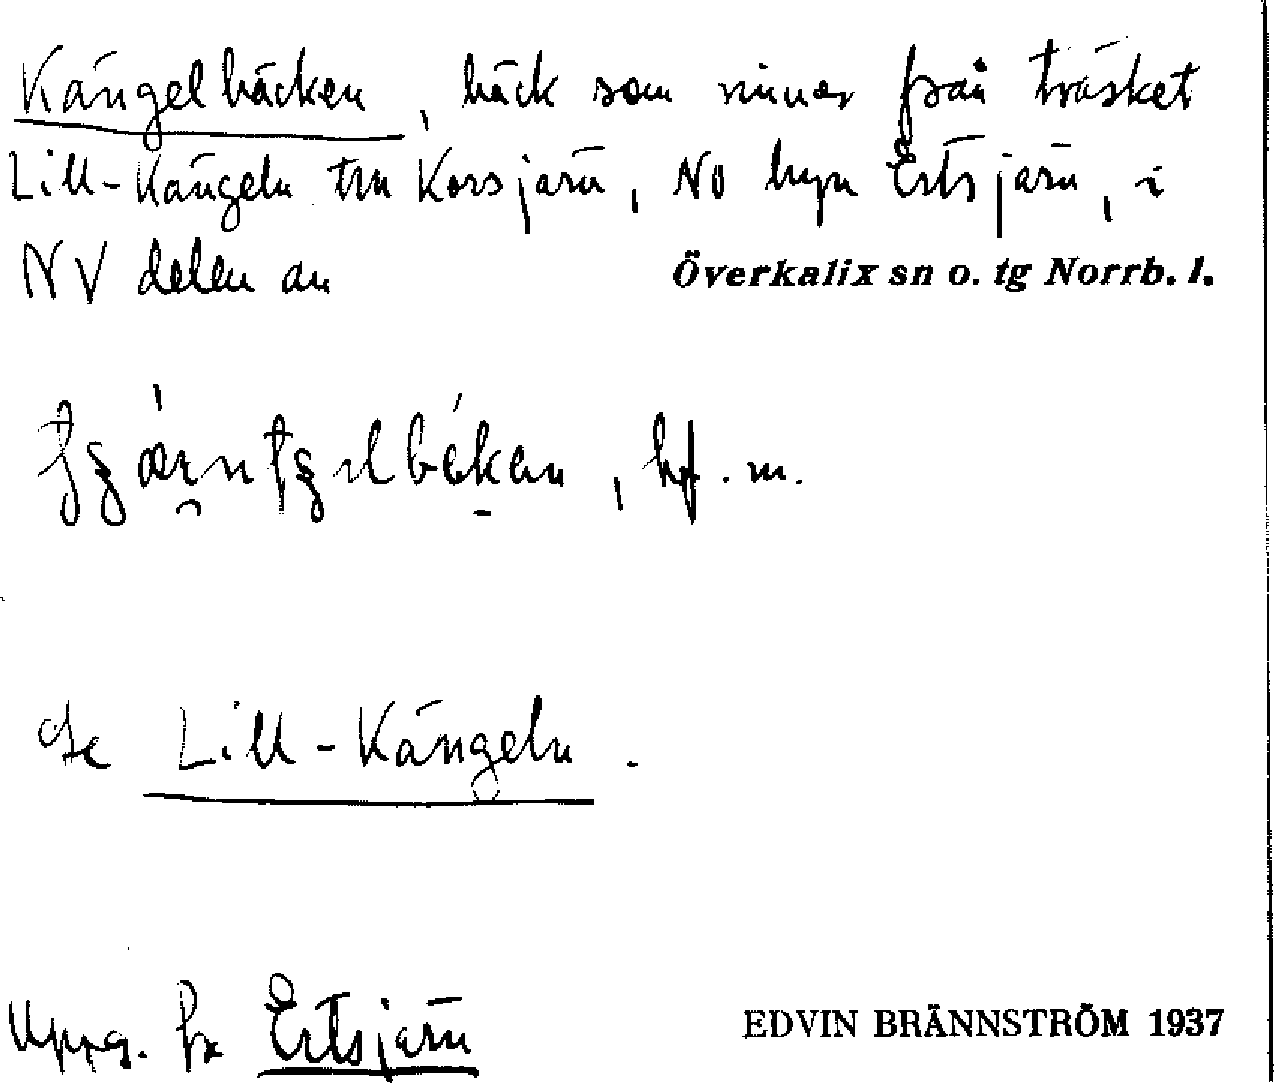 Kängelbäcken, bäck som rinner från träsket
Lill-Kängeln till Korsjärv, NO byn Ertsjärv, i
NV delen av Överkalix sn o. tg Norrb. l.
bf. m.
Se Lill-Kängeln.
Uppg. fr Ertsjärv
EDVIN BRÄNNSTRÖM 1937